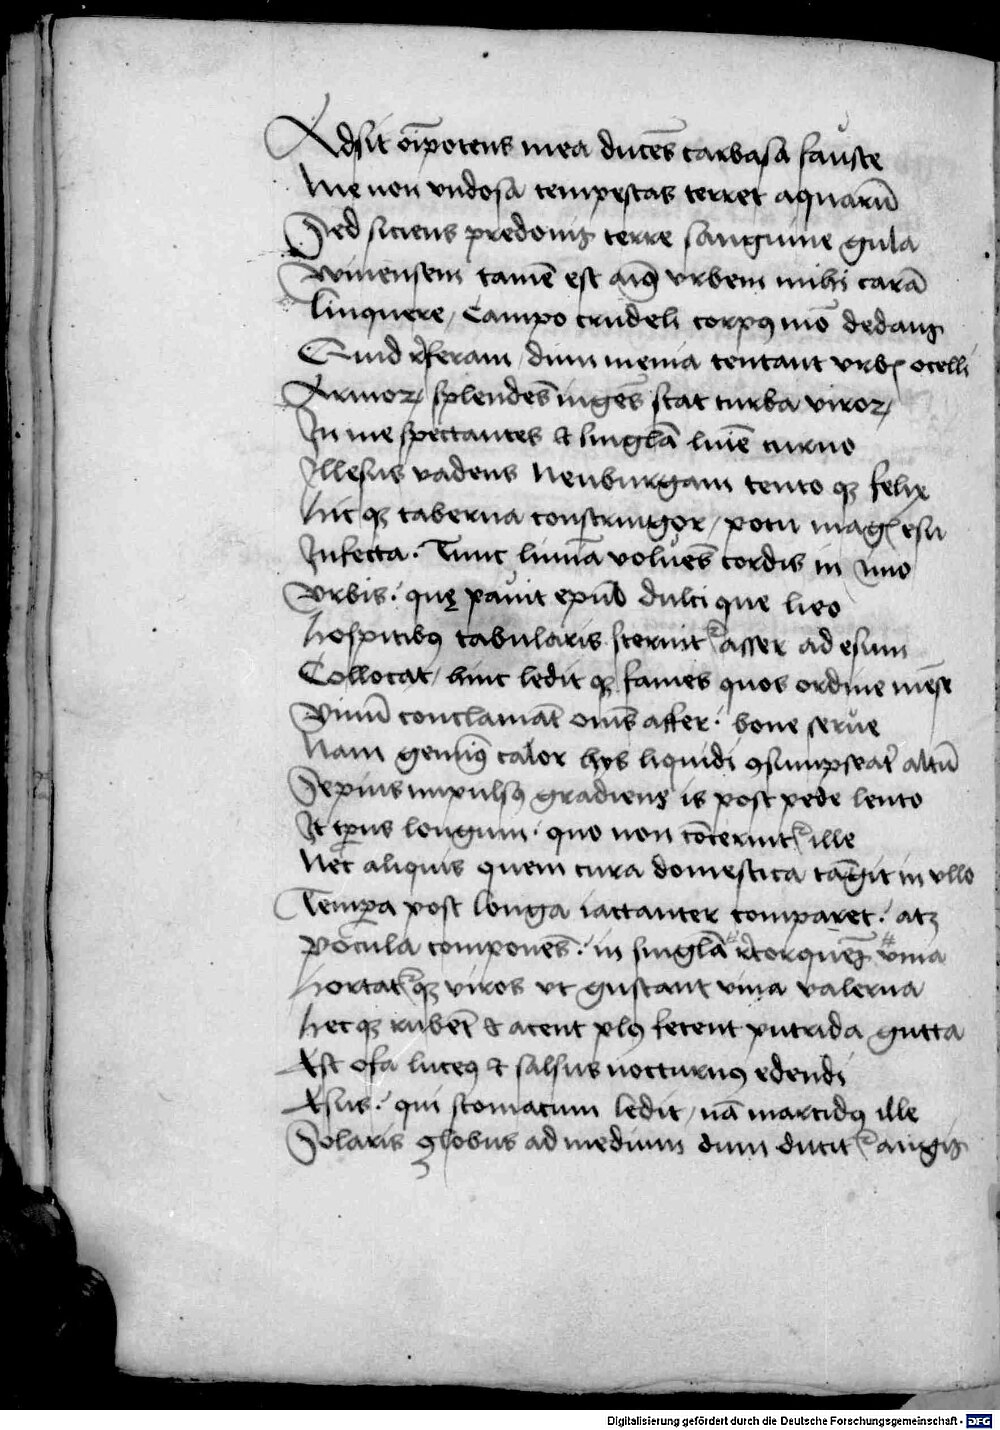 Adsit oīpotens mea ducēs carbasa fauste
Me non vndosa tempestas terret aquarū
Sed siciens predonis terre sanguine gula
Winensem tamē est aīꝰ vrbem mihi carā
Linquere, Campo crudeli corpꝰ meo dedans
Quid referam, dum menia tentant vrbis ocelli
Armoꝝ splendēs ingēs stat turba viroꝝ
In me spectantes et singlā lumē curuo
Illesus vadens Neuburgam tento qꝫ felix
Hic qꝫ taberna constringor, potu magis esu
Infecta. Tunc lumīa voluēs cordis in vno
Vrbis. quę pauit epūb dulci que lieo
Hospitibꝰ tabularis sternitur asser ad esum
Collocat, hinc ledit qꝫ fames quos ordine mēse
Vinū conclamāt omīs affer. bone serue
Nam genuīꝰ calor hys liquidi ꝯsumpseat altū
Sepius impulsꝰ gradiens is post pede lento
It tp̄us longum. quo non cōcernitur ille
Nec aliquis quem cura domestica tāgit in vllo
Tempora post longa iactanter comparet. atꝫ
Pocula componēs. in singlā retorquens vina
Hortatur qꝫ viros vt gustant vina valerna
Hec qꝫ rubēt et acent plꝰ fetent putrida gutta
Est ofa luceꝰ et salsus nocturnꝰ edendi
Esus. qui stomacum ledit, nā marcidꝰ ille
Solaris globus ad medium dum ducitur augis
Digitalisierung gefördert durch die Deutsche Forschungsgemeinschaft - DFG